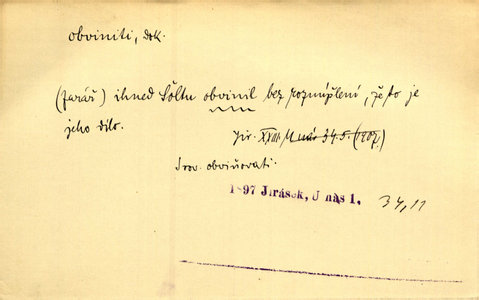 obviniti, dok.
(farář) ihned Šoltu obvinil bez rozmýšlení, že to je
jeho dílo.
Jir. XXIII U nás 34.5. (1897)
Srov. obviňovati.
1897 Jirásek, U nás 1. 34,11